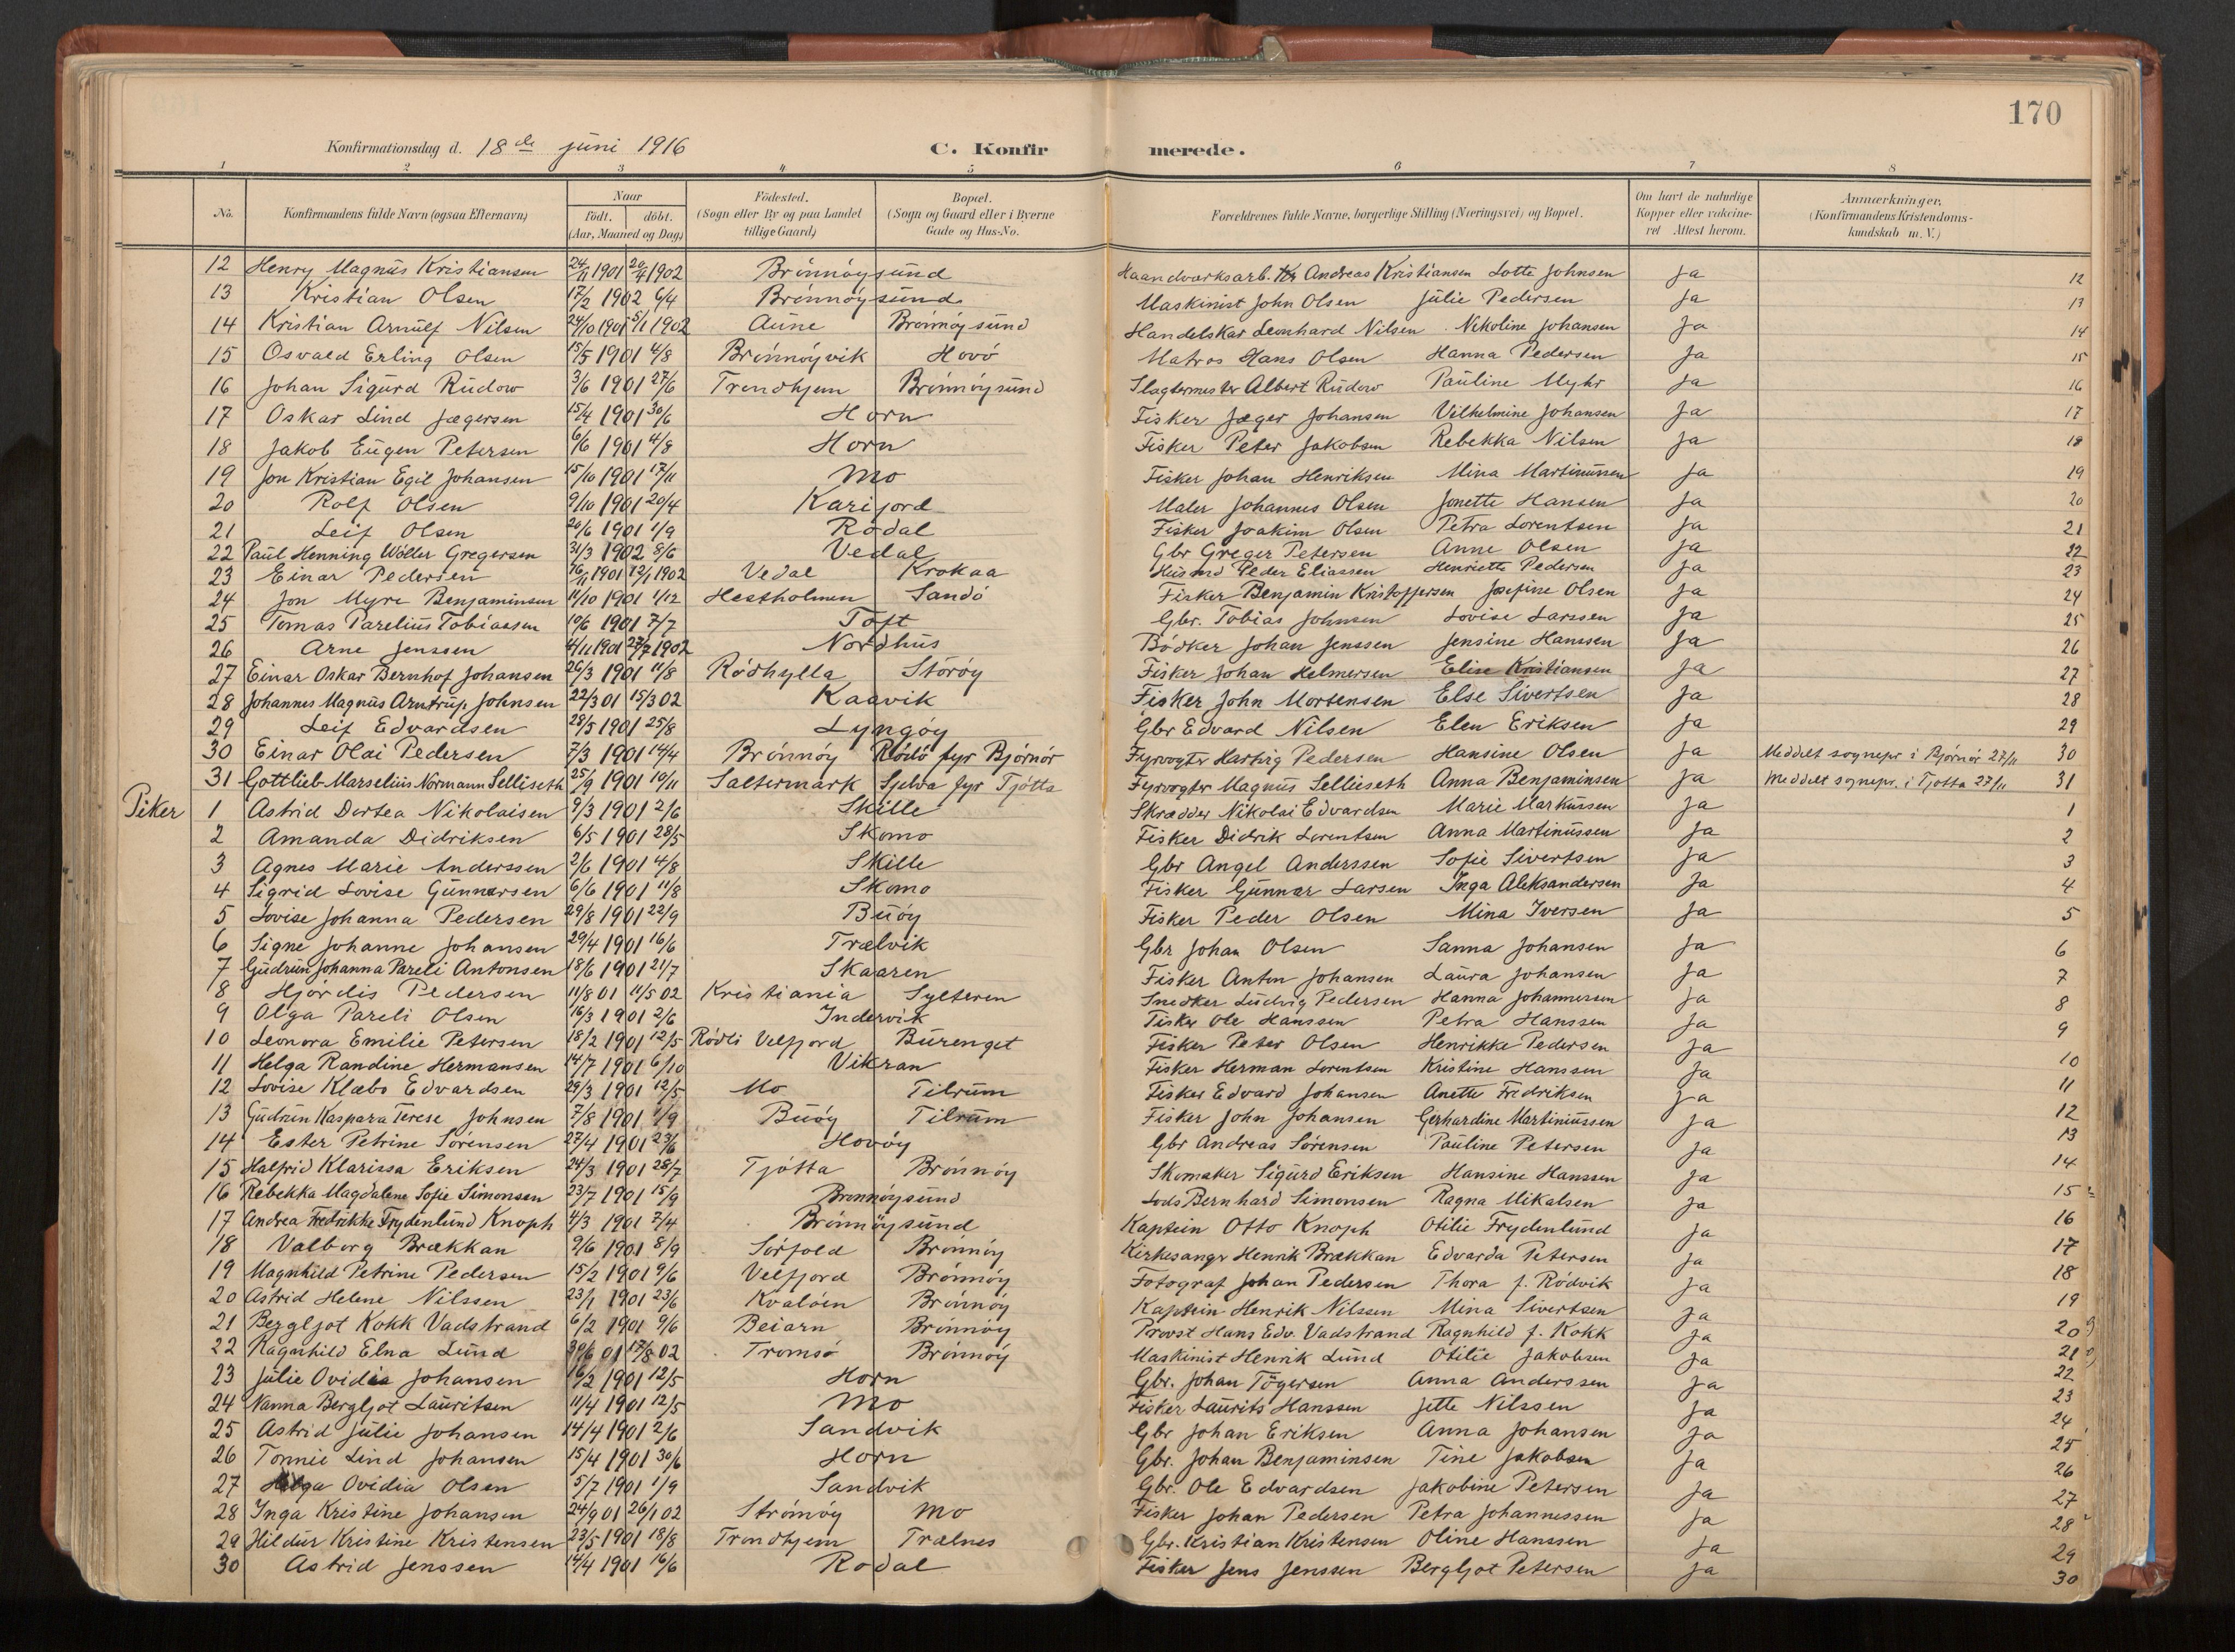 170
Konfirmationsdag d. 18de juni 1916 C. Konfirmerede.
1 2 3 4 5 6 7 8
No. Konfirmandens fulde Navn (ogsaa Efternavn) Naar Födt. döbt. (Aar, Maaned og Dag) Födested. (Sogn eller By og paa Landet tillige Gaard) Bopæl. (Sogn og Gaard eller i Byerne Gade og Hus-No. Forældrenes fulde Navne, borgerlige Stilling (Næringsvei) og Bopæl. Om havt de naturlige Kopper eller vakcineret Attest herom. Anmærkninger, (Konfirmandens Kristendomskundskab m. V.)
12 Henry Magnus Kristiansen 24/11 1901 20/4 1902 Brönnöysund Haandværksarb. Andreas Kristiansen Lotte Johnsen Ja 12
13 Kristian Olsen 17/2 1902 6/4 Brönnöysund Maskinist John Olsen Julie Pedersen Ja 13
14 Kristian Arnulf Nilsen 24/10 1901 5/1 1902 Aune Brönnöysund Handelskar Leonhard Nilsen Nikoline Johansen Ja 14
15 Osvald Erling Olsen 15/5 1901 4/8 Brönnöyvik Hovö Matros Hans Olsen Hanna Pedersen Ja 15
16 Johan Sigurd Rudow 3/6 1901 27/6 Trondhjem Brönnöysund Slagtermester Albert Rudow Pauline Myhr Ja 16
17 Oskar Lind Jægersen 15/4 1901 30/6 Horn Fisker Jæger Johansen Vilhelmine Johansen Ja 17
18 Jakob Eugen Petersen 6/6 1901 4/8 Horn Fisker Peter Jakobsen Rebekka Nilsen Ja 18
19 Jon Kristian Egil Johansen 15/10 1901 17/11 Mo Fisker Johan Henriksen Mina Martinussen Ja 19
20 Rolf Olsen 9/10 1901 20/4 Karifjord Maler Johannes Olsen Jonette Hansen Ja 20
21 Leif Olsen 20/6 1901 1/9 Rodal Fisker Joakim Olsen Petra Lorentsen Ja 21
22 Paul Henning Wöller Gregersen 31/3 1902 8/6 Vedal Gbr Greger Petersen Anne Olsen Ja 22
23 Einar Pedersen 16/11 1901 12/1 1902 Vedal Krokaa Husmd Peder Eliassen Henriette Pedersen Ja 23
24 Jon Myre Benjaminsen 11/10 1901 1/12 Hestholmen Sandö Fisker Benjamin Kristoffersen Josefine Olsen Ja 24
25 Tomas Parelius Tobiassen 10/6 1901 7/7 Toft Gbr. Tobias Johnsen Lovise Larssen Ja 25
26 Arne Jenssen 4/11 1901 27/2 1902 Nordhus Bödker Johan Jenssen Jensine Hanssen Ja 26
27 Einar Oskar Bernhof Johansen 26/3 1901 11/8 Rödhylla Storöy Fisker Johan Helmersen Elise Kristiansen Ja 27
28 Johannes Magnus Arntrup Johnsen 22/3 01 15/3 02 Kaavik Fisker John Mortensen Else Sivertsen Ja 28
29 Leif Edvardsen 28/5 1901 25/8 Lyngöy Gbr Edvard Nilsen Elen Eriksen Ja 29
30 Einar Olai Pedersen 7/3 1901 14/4 Brönnöy Rödö fyr Björnör Fyrvogter Hartvig Pedersen Hansine Olsen Ja Meddelt sognepr i Björnör 27/11 30
31 Gottlieb Marselius Normann Selliseth 25/9 1901 10/11 Saltermark Sjelva fyr Tjötta Fyrvogter Magnus Selliseth Anna Benjaminsen Ja Meddelt sognepr. i Tjotta 27/11 31
Piker 1 Astrid Dortea Nikolaisen 9/3 1901 2/6 Skille Skrædder Nikolai Edvardsen Marie Markussen Ja 1
2 Amanda Didriksen 6/5 1901 28/5 Skomo Fisker Didrik Lorentsen Anna Martinussen Ja 2
3 Agnes Marie Anderssen 2/6 1901 4/8 Skille Gbr Angel Anderssen Sofie Sivertsen Ja 3
4 Sigrid Lovise Gunnarsen 6/6 1901 11/8 Skomo Fisker Gunnar Larsen Inga Aleksandersen Ja 4
5 Lovise Johanna Pedersen 29/8 1901 22/9 Buöy Fisker Peder Olsen Mina Iversen Ja 5
6 Signe Johanne Johansen 29/4 1901 16/6 Trælvik Gbr Johan Olsen Sanna Johansen Ja 6
7 Gudrun Johanna Pareli Antonsen 18/6 1901 21/7 Skaaren Fisker Anton Johansen Laura Johansen Ja 7
8 Hjördis Pedersen 11/8 01 11/5 02 Kristiania Sylteren Snedker Ludvig Pedersen Hanna Johannessen Ja 8
9 Olga Pareli Olsen 16/3 1901 2/6 Indervik Fisker Ole Hanssen Petra Hanssen Ja 9
10 Leonora Emilie Petersen 18/2 1901 12/5 Rödli Velfjord Burenget Fisker Peter Olsen Henrikke Pedersen Ja 10
11 Helga Randine Hermansen 14/7 1901 6/10 Vikran Fisker Herman Lorentsen Kristine Hanssen Ja 11
12 Lovise Klæbo Edvardsen 29/3 1901 12/5 Mo Tilrum Fisker Edvard Johansen Anette Fredriksen Ja 12
13 Gudrun Kaspara Terese Johnsen 7/8 1901 1/9 Buöy Tilrum Fisker John Johansen Gerhardine Martiniussen Ja 13
14 Ester Petrine Sörensen 27/4 1901 23/6 Hovöy Gbr Andreas Sörensen Pauline Petersen Ja 14
15 Halfrid Klarissa Eriksen 24/3 1901 28/7 Tjötta Brönnöy Skomaker Sigurd Eriksen Hansine Hanssen Ja 15
16 Rebekka Magdalene Sofie Simonsen 23/7 1901 15/9 Brönnöysund Lods Bernhard Simonsen Ragna Mikalsen Ja 16
17 Andrea Fredrikke Frydenlund Knoph 4/3 1901 7/4 Brönnöysund Kaptein Otto Knoph Otilie Frydenlund Ja 17
18 Valborg Brækkan 9/6 1901 8/9 Sörfold Brönnöy Kirkesangr Henrik Brækkan Edvarda Petersen Ja 18
19 Magnhild Petrine Pedersen 15/2 1901 9/6 Velfjord Brönnöy Fotograf Johan Pedersen Thora f. Rödvik Ja 19
20 Astrid Helene Nilssen 23/1 1901 23/6 Kvalöen Brönnöy Kaptein Henrik Nilssen Mina Sivertsen Ja 20
21 Bergljot Kokk Vadstrand 6/2 1901 9/6 Beiarn Brönnöy Provst Hans Edv. Vadstrand Ragnhild f. Kokk Ja 21
22 Ragnhild Elna Lund 30/6 01 17/8 02 Tromsö Brönnöy Maskinist Henrik Lund Otilie Jakobsen Ja 22
23 Julie Ovidia Johansen 16/2 1901 12/5 Horn Gbr. Johan Tögersen Anna Anderssen Ja 23
24 Nanna Bergljot Lauritsen 11/4 1901 12/5 Mo Fisker Laurits Hanssen Jette Nilssen Ja 24
25 Astrid Julie Johansen 14/4 1901 2/6 Sandvik Gbr Johan Eriksen Anna Johansen Ja 25
26 Tonnie Lind Johansen 15/4 1901 30/6 Horn Gbr. Johan Benjaminsen Tine Jakobsen Ja 26
27 Helga Ovidia Olsen 5/7 1901 1/9 Sandvik Gbr. Ole Edvardsen Jakobine Petersen Ja 27
28 Inga Kristine Johansen 24/9 01 26/1 02 Strömöy Mo Fisker Johan Pedersen Petra Johannessen Ja 28
29 Hildur Kristine Kristensen 23/5 1901 18/8 Trondhjem Trælnes Gbr. Kristian Kristensen Oline Hanssen Ja 29
30 Astrid Jenssen 14/4 1901 16/6 Rodal Fisker Jens Jenssen Bergljot Petersen Ja 30